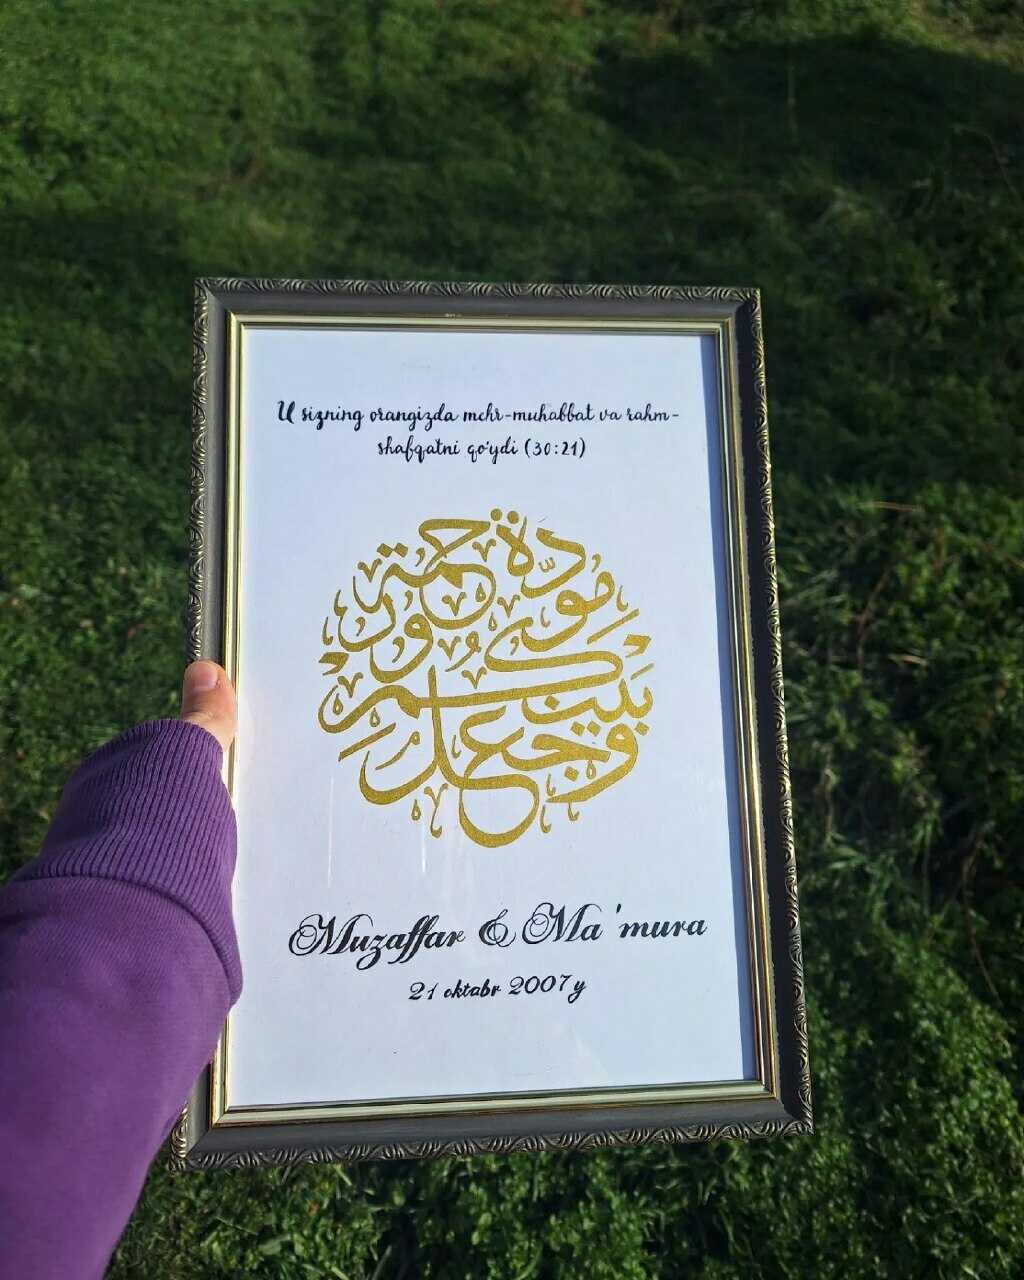 U sizning orangizda mehr-muhabbat va rahm-
shafqatni qo'ydi (30:21)
وجعل بينكم مودة ورحمة
Muzaffar & Ma'mura
21 oktabr 2007 y